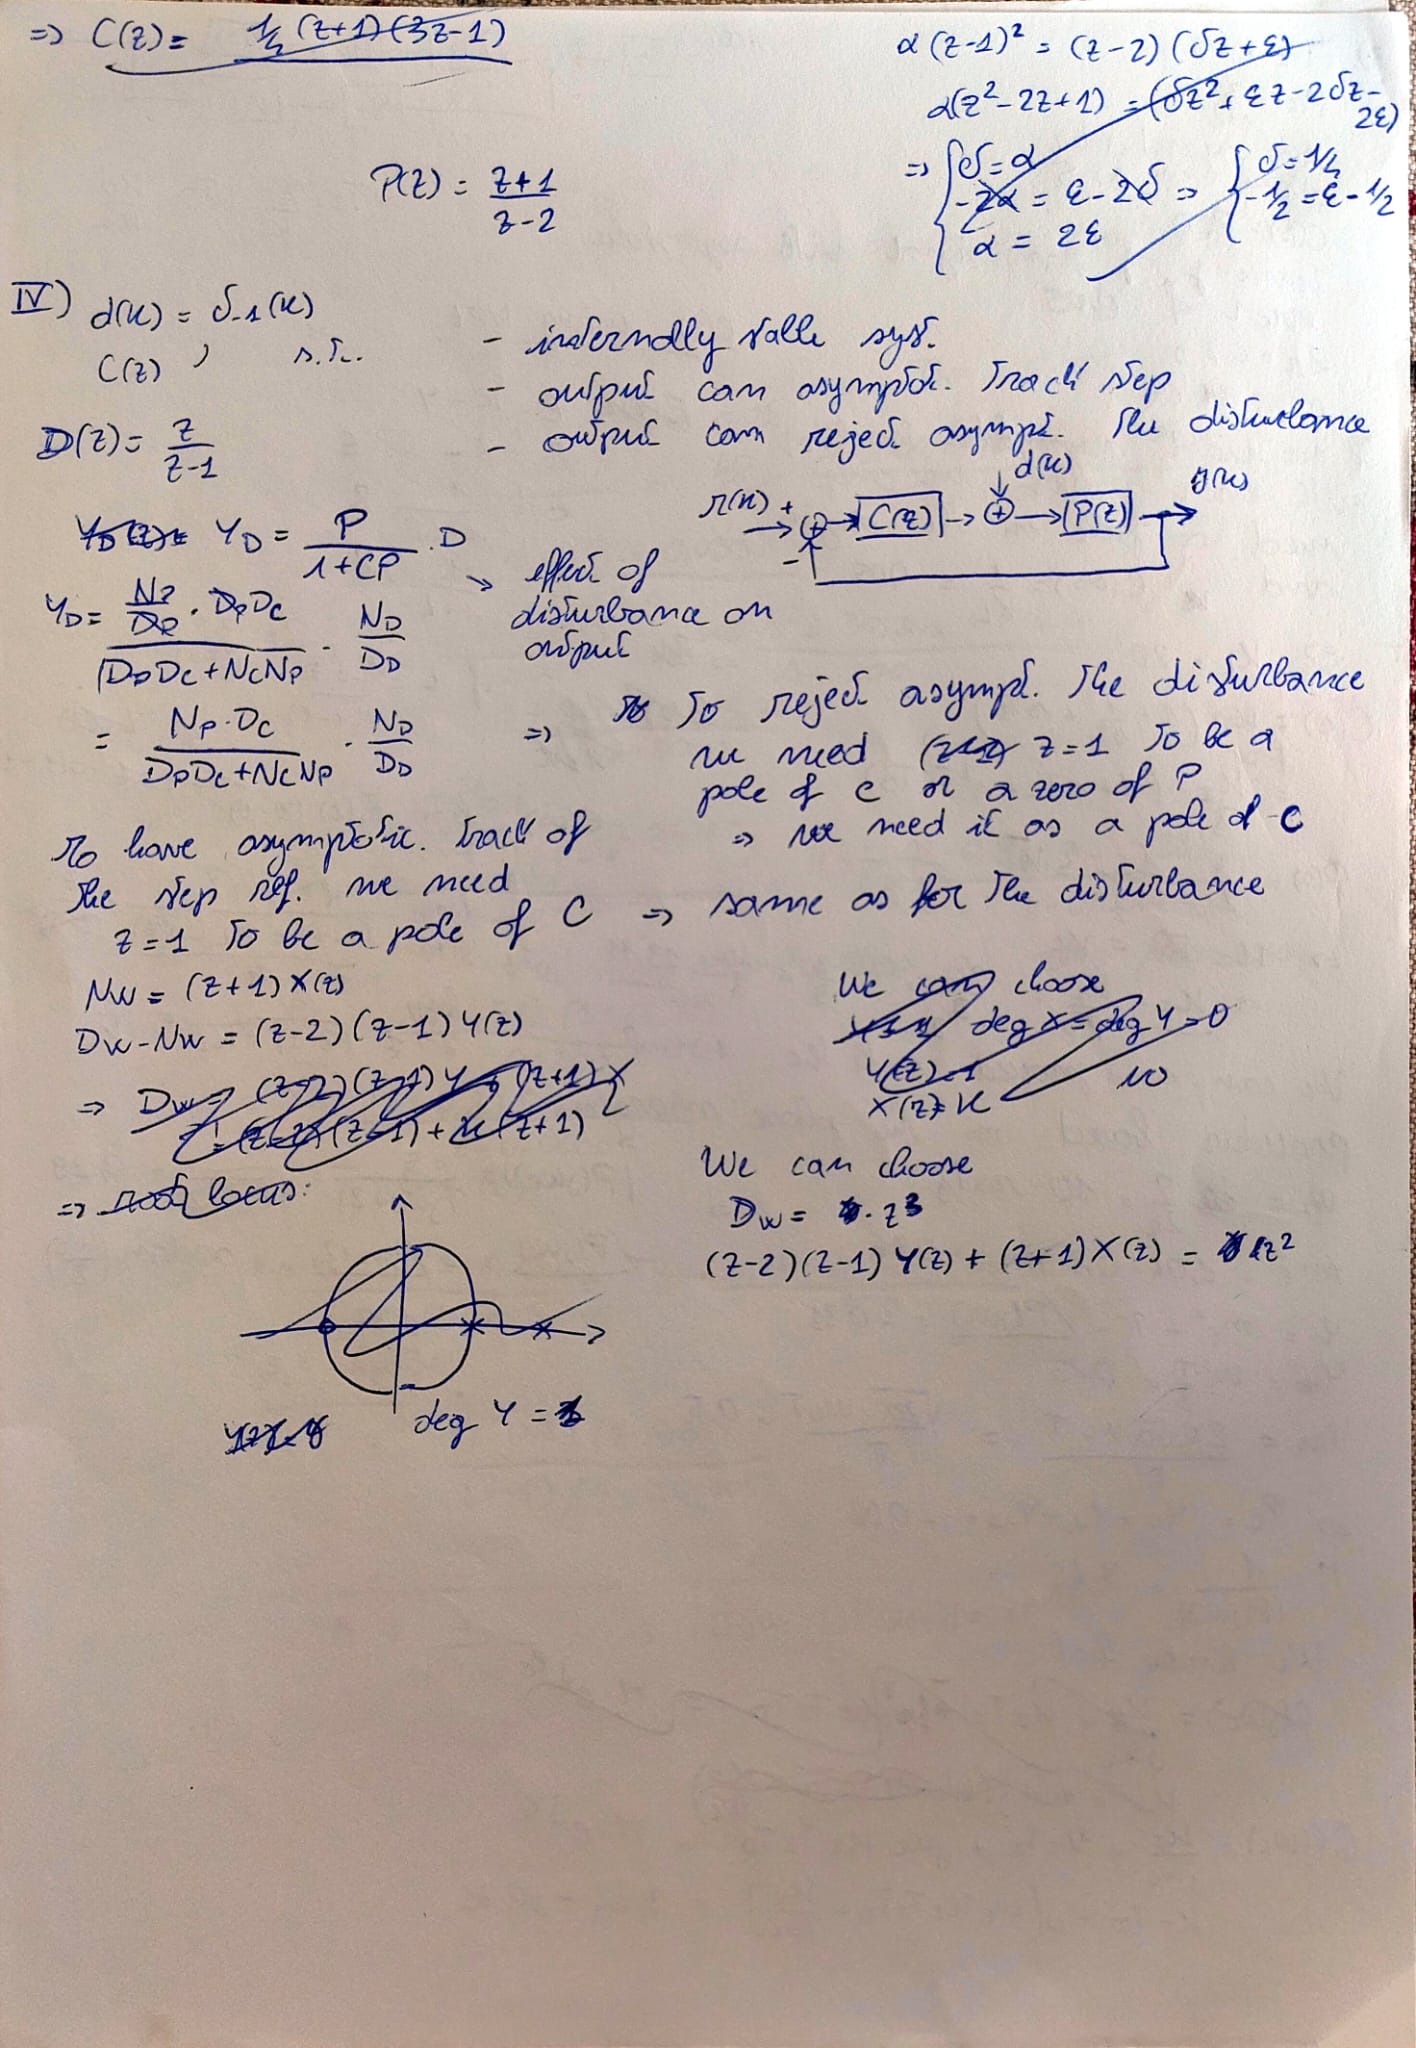 => C(z) = 1/4 (z+1) (3z-1)
α (z-1)² = (z-2) (δz + ε)
α(z² - 2z + 1) = (δz² + εz - 2δz - 2ε)
=> { δ = α
-2α = ε - 2δ =>
α = 2ε
{ δ = 1/4
-1/2 = ε - 1/2
P(z) = z+1 / z-2
IV) d(k) = δ-1(k)
C(z) , s.t.
- internally stable syst.
- output can asymptot. track step
- output can reject asympt. the disturbance
D(z) = z / z-1
r(k) + - C(z) d(k) + P(z) y(k)
YD = P / 1+CP · D
-> effect of
disturbance on
output
YD = NP/DP · DPDC / DPDC + NCNP · ND / DD
= NP · DC / DPDC + NCNP · ND / DD
=> to reject asympt. the disturbance
we need z=1 to be a
pole of C or a zero of P
=> we need it as a pole of C
to have asymptotic. track of
the step ref. we need
z=1 to be a pole of C => same as for the disturbance
NW = (z+1) X(z)
DW - NW = (z-2) (z-1) Y(z)
=> DW = (z-2)(z-1) Y + (z+1) X
= (z-2)(z-1) + k(z+1)
=> root locus:
deg Y =
We can choose
deg X = deg Y = 0
Y(z) = 1
X(z) = k
NO
We can choose
DW = z³
(z-2)(z-1) Y(z) + (z+1) X(z) = z²